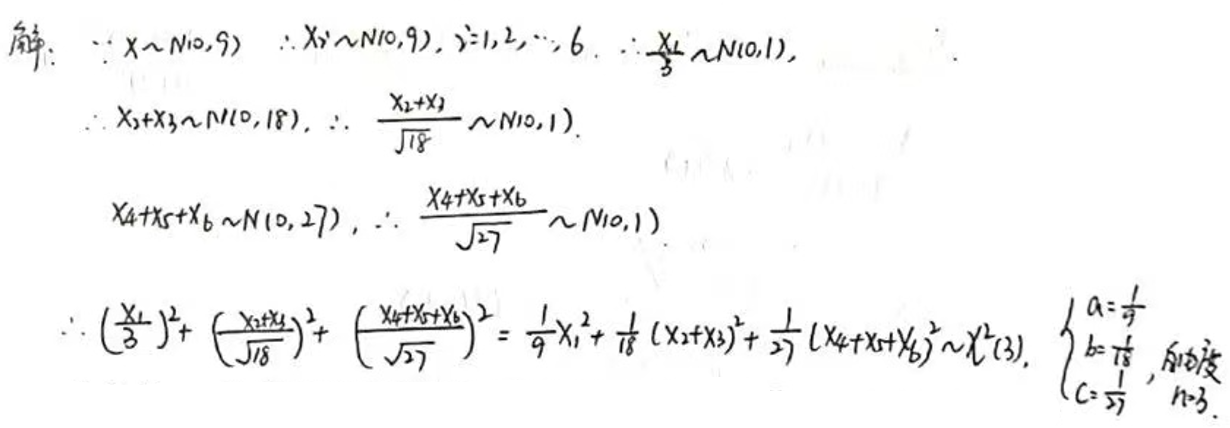 解: ∵ X~N(0,9) ∴ Xi~N(0,9), i=1,2,…,6. ∴ X₁/3 ~N(0,1),
∴ X₂+X₃~N(0,18), ∴ (X₂+X₃)/√18 ~N(0,1).
X₄+X₅+X₆~N(0,27), ∴ (X₄+X₅+X₆)/√27 ~N(0,1)
∴ (X₁/3)²+ ((X₂+X₃)/√18)²+ ((X₄+X₅+X₆)/√27)² = 1/9 X₁²+ 1/18 (X₂+X₃)²+ 1/27 (X₄+X₅+X₆)²~χ²(3). { a=1/9 b=1/18 c=1/27 , 自由度 n=3.